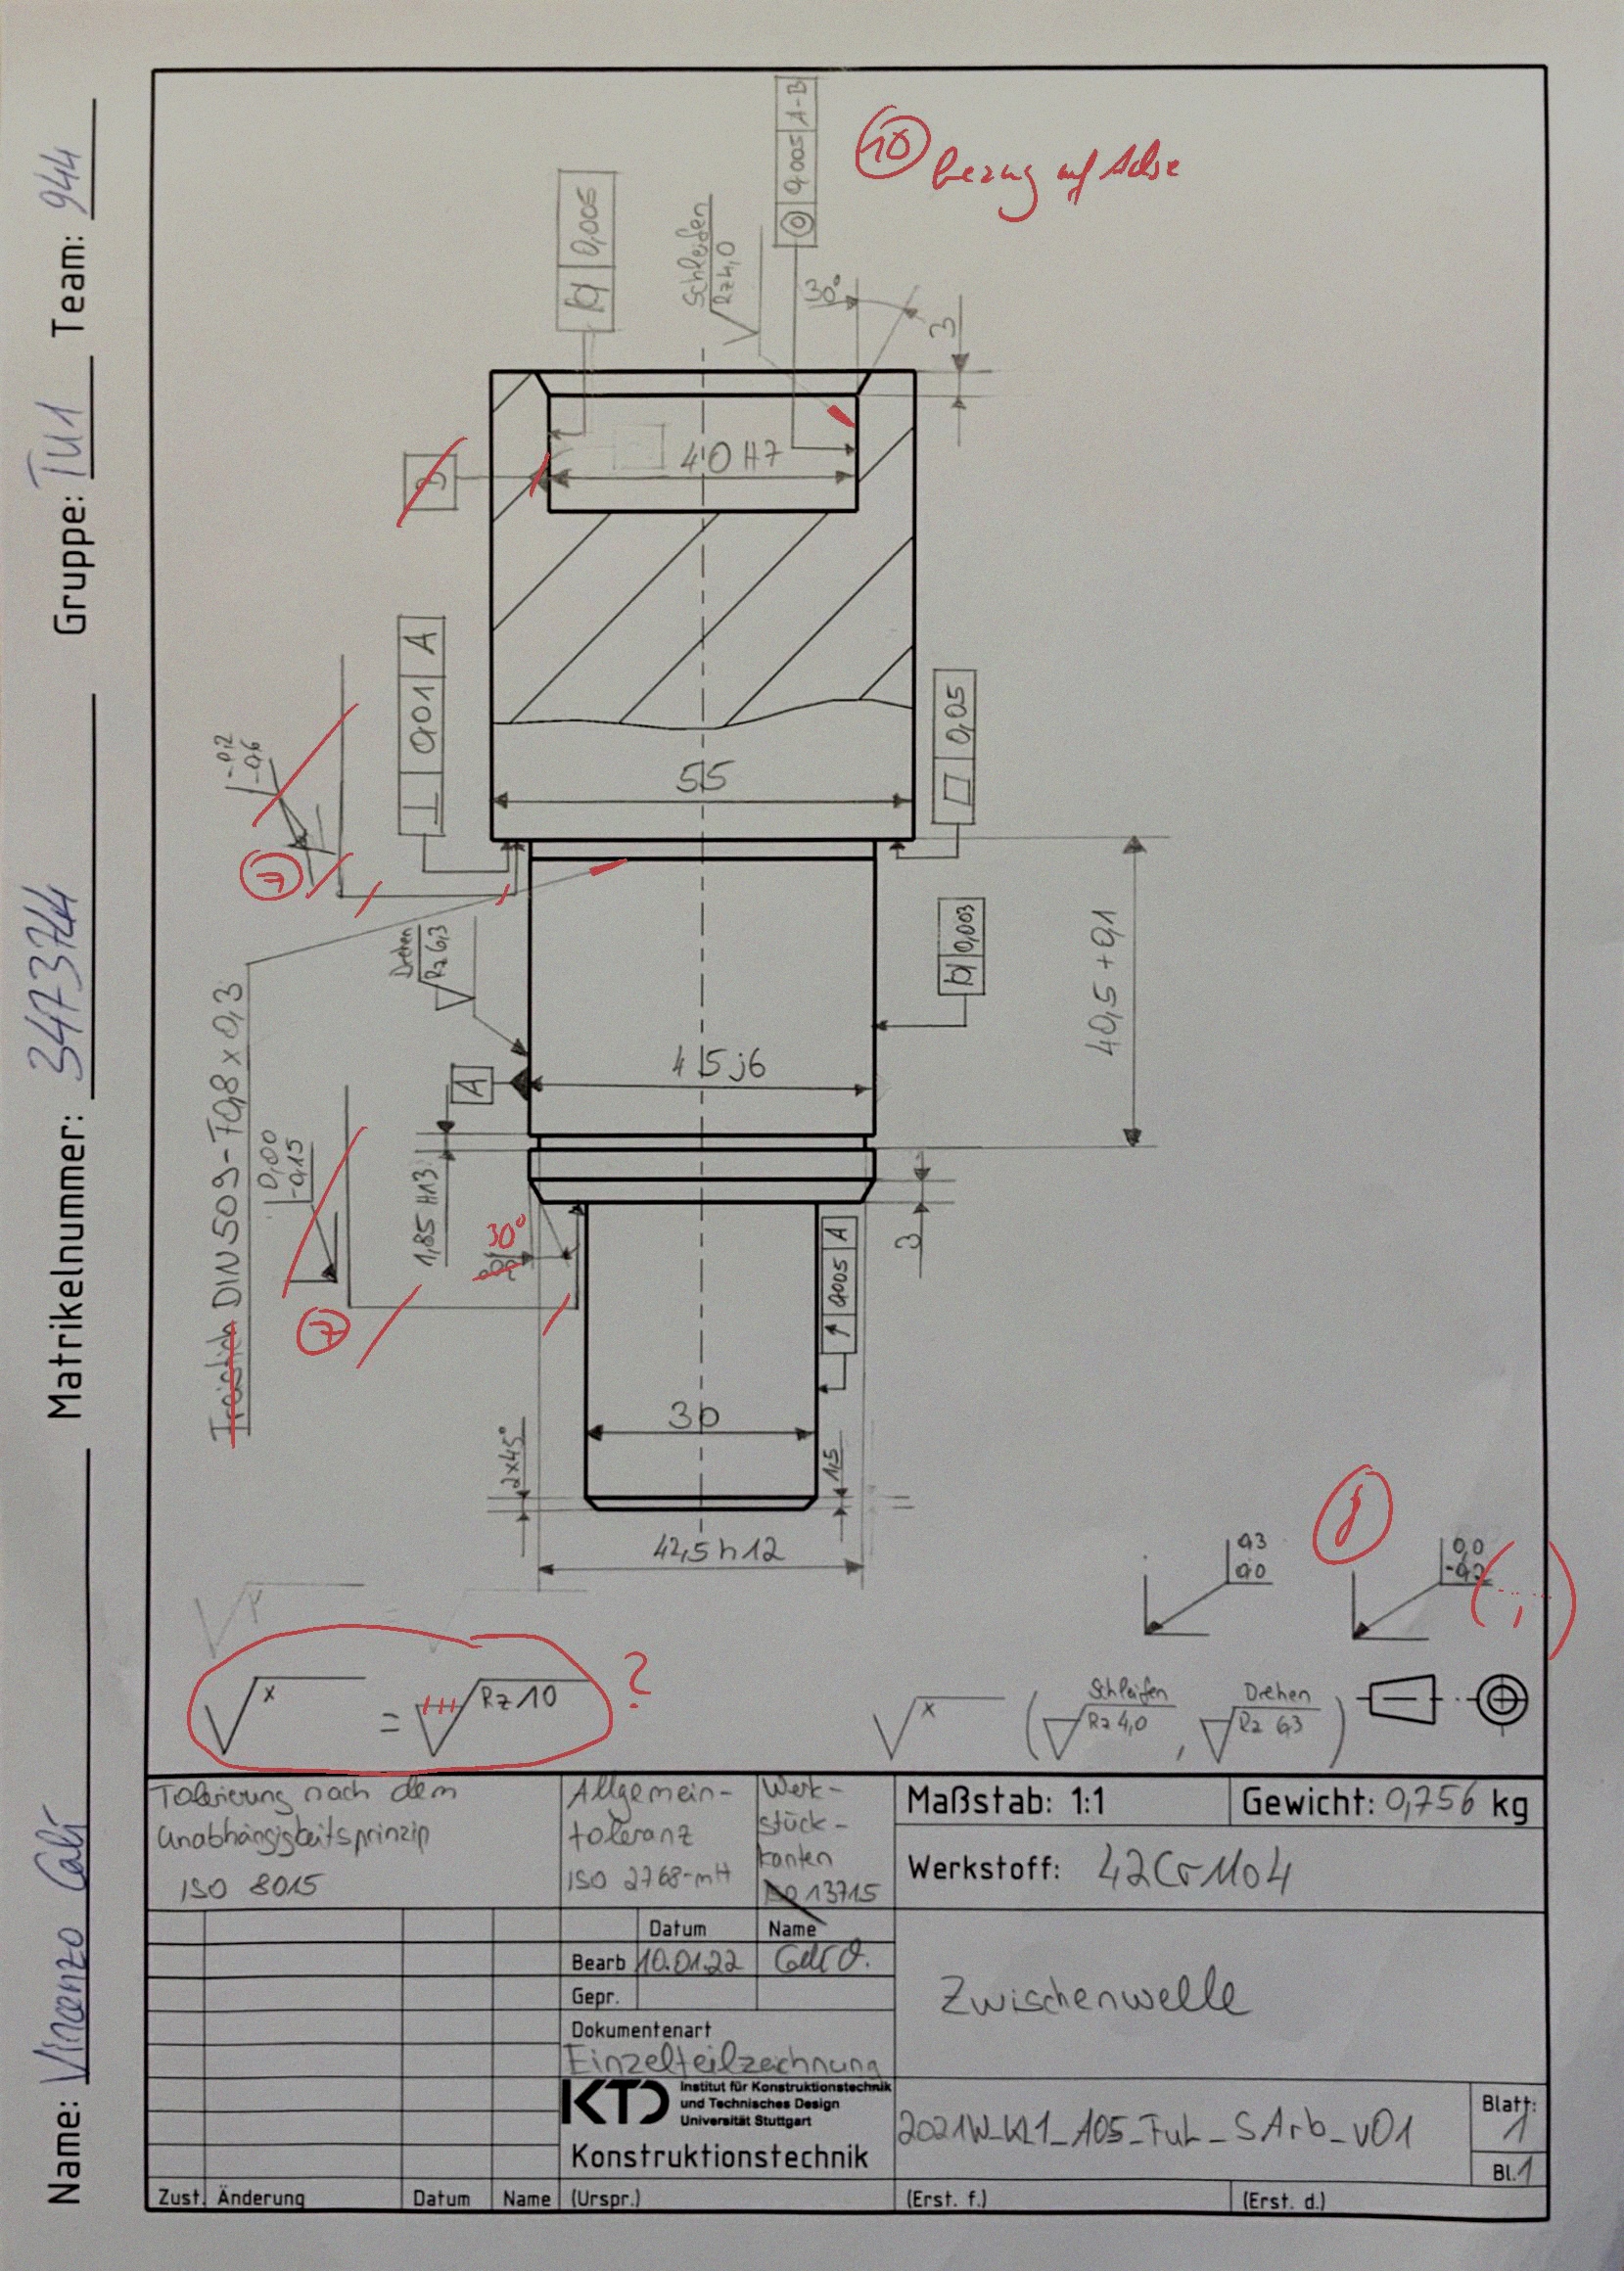 Name: Vincenzo Calì
Matrikelnummer: 3473744
Gruppe: TU1
Team: 944
10
bezug auf Achse
0,005
Schleifen
Rz 4,0
0,005 A-B
30°
3
40 H7
0,01 A
-0,2
-0,6
7
55
0,05
Drehen
Rz 6,3
0,003
40,5 +0,1
45 j6
A
Freistich DIN 509-F0,8x0,3
0,00
-0,15
1,85 H13
30°
7
0,005 A
3
30
2x45°
1,5
42,5 h12
0,3
0,0
8
0,0
x = Rz 10 ?
x ( Schleifen Rz 4,0 , Drehen Rz 6,3 )
Tolerierung nach dem
Unabhängigkeitsprinzip
ISO 8015
Allgemein-
toleranz
ISO 2768-mH
Werk-
stück-
kanten
ISO 13715
Maßstab: 1:1
Gewicht: 0,756 kg
Werkstoff: 42CrMo4
Datum Name
Bearb 10.01.22
Gepr.
Dokumentenart
Einzelteilzeichnung
Zwischenwelle
KTD Institut für Konstruktionstechnik
und Technisches Design
Universität Stuttgart
Konstruktionstechnik
2021W_KL1_A05_FuL_SArb_v01
Blatt:
1
Bl. 1
Zust. Änderung Datum Name (Urspr.) (Erst. f.) (Erst. d.)